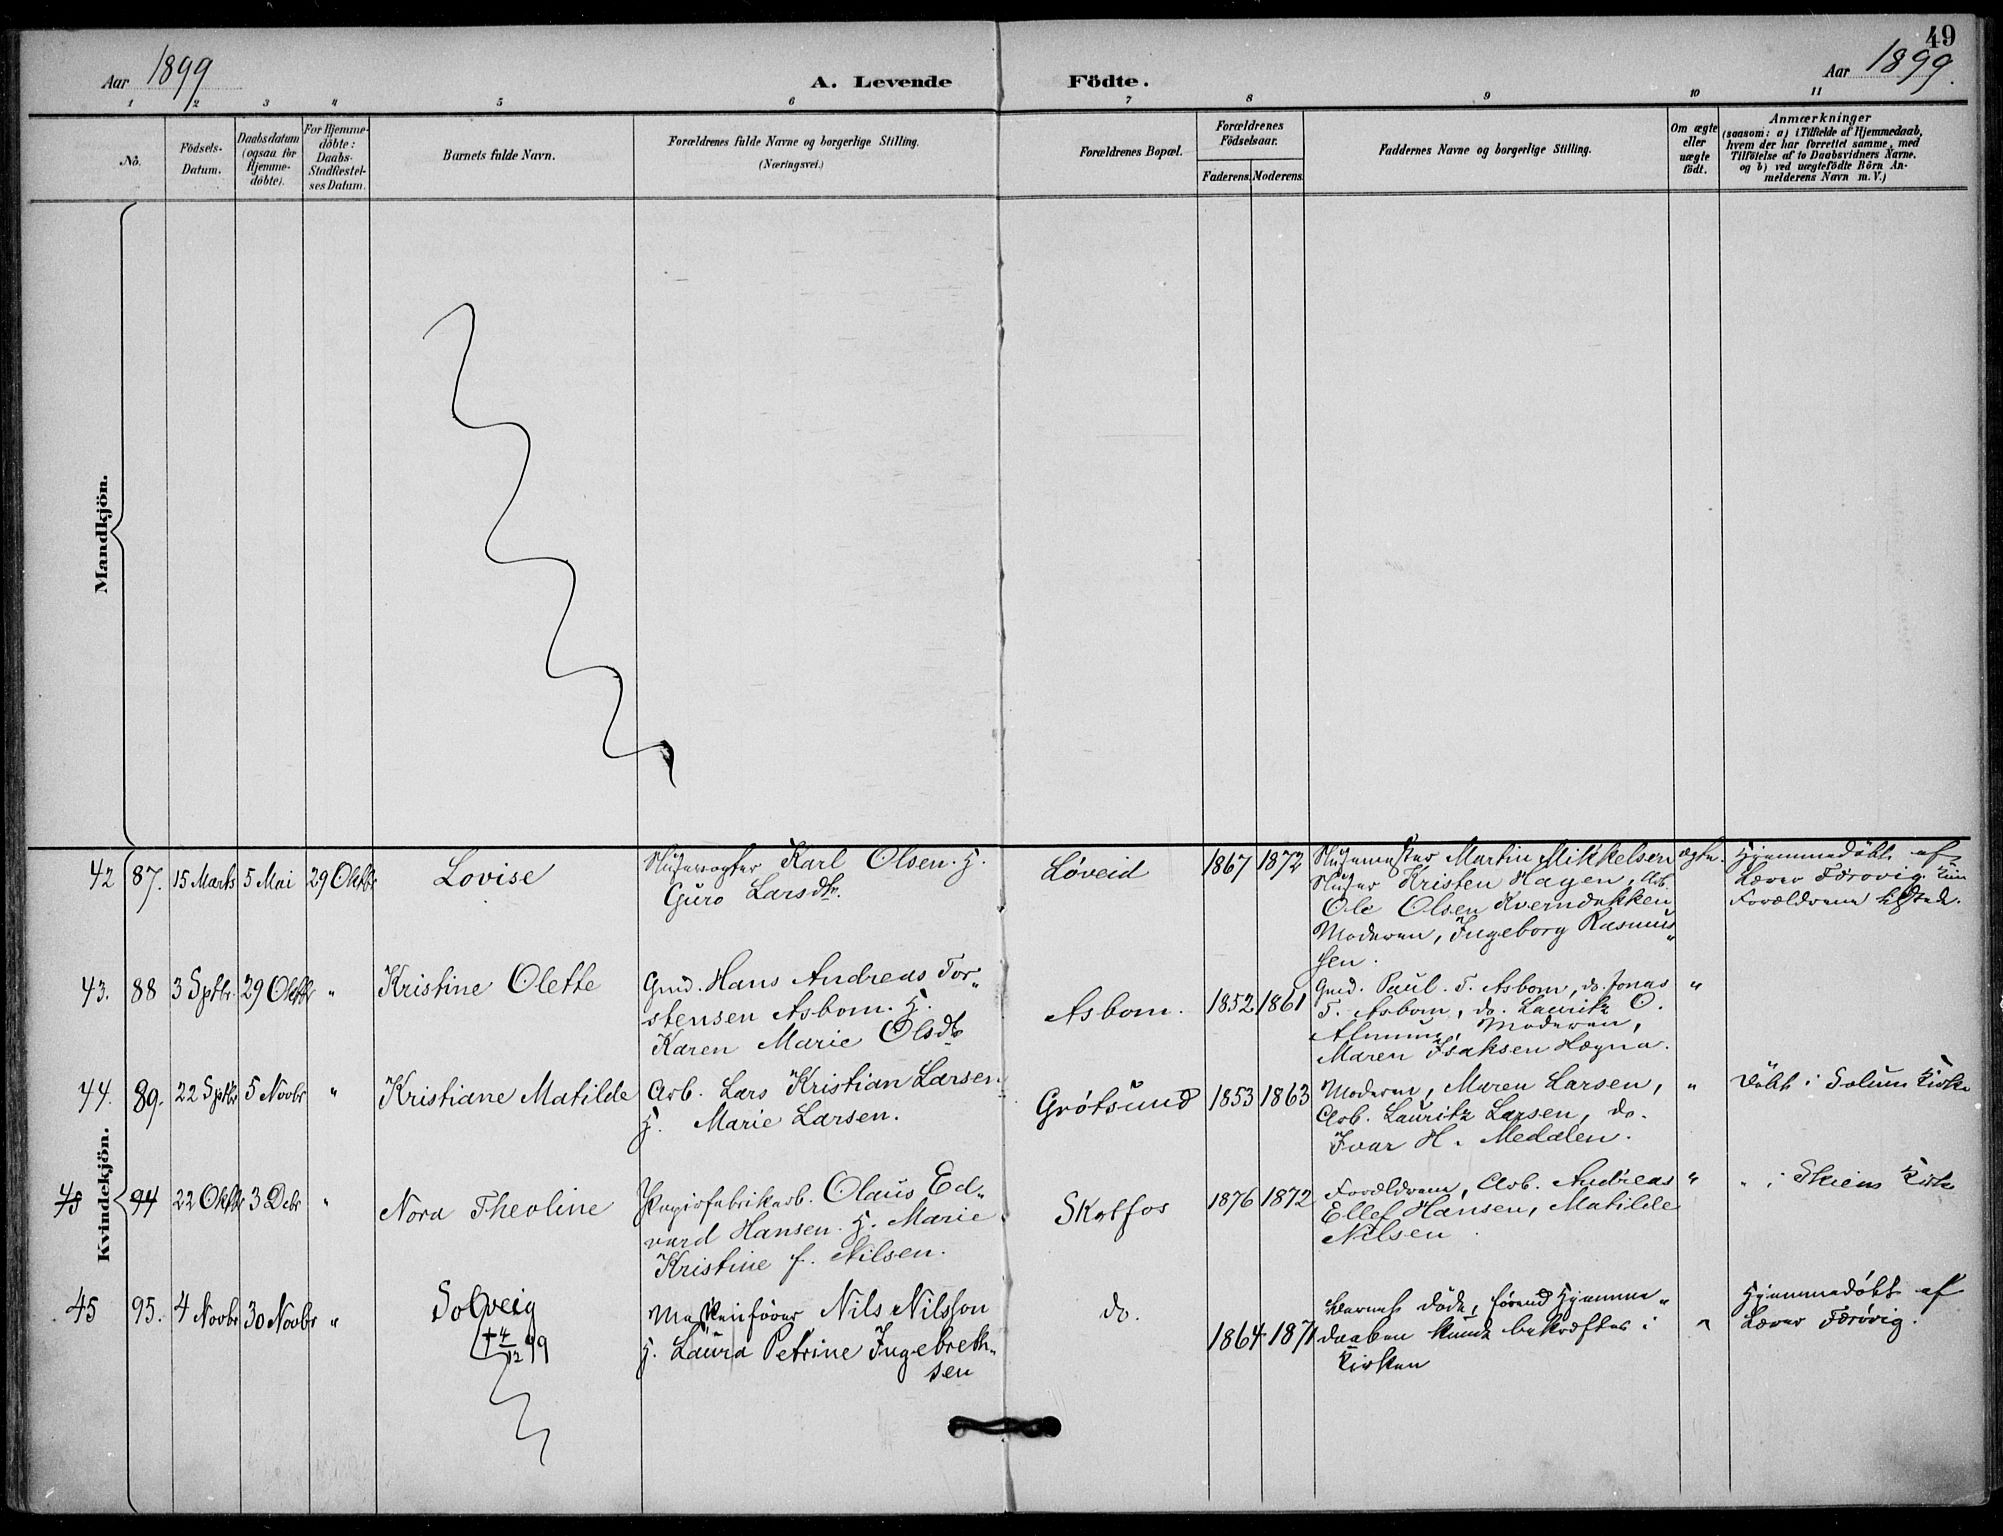 49
Aar 1899
A. Levende Födte.
Aar 1899.
1 2 3 4 5 6 7 8 9 10 11
No.
Födsels-
Datum.
Daabsdatum
(ogsaa for
Hjemme-
döbte).
For Hjemme-
döbte:
Daabs-
Stadfæstel-
ses Datum.
Barnets fulde Navn.
Forældrenes fulde Navne og borgerlige Stilling.
(Næringsvei.)
Forældrenes Bopæl.
Forældrenes
Födselsaar.
Faderens. Moderens.
Faddernes Navne og borgerlige Stilling.
Om ægte
eller
uægte
födt.
Anmærkninger
(saasom: a) i Tilfælde af Hjemmedaab,
hvem der har forrettet samme, med
Tilföielse af to Daabsvidners Navne.
og b) ved uægtefödte Börn An-
melderens Navn m. V.)
Mandkjön.
Kvindekjön.
42 87. 15 Marts 5 Mai 29 Oktbr Lovise
Slusevogter Karl Olsen. H.
Guro Larsdtr.
Løveid 1867 1872
Slusemester Martin Mikkelsen
Kristen Hagen, Arb.
Ole Olsen Kverndokken
Moderen, Ingeborg Rasmus
sen.
ægte.
Hjemmedøbt af
Lærer Færøvig.
Forældrene tilstede.
43. 88 3 Septbr. 29 Oktbr " Kristine Olette
Gmd. Hans Andreas Tor-
stensen Asbom. H.
Karen Marie Olsdtr
Asbom. 1852 1861
Gmd. Paul. T. Asbom, do. Jonas
T. Asbom, do. Lauritz O.
Moderen,
Maren Isaksen Hægna.
"
44. 89. 22 Septbr 5 Novbr " Kristiane Matilde
Arb. Lars Kristian Larsen.
H. Marie Larsen.
Grøtsund 1853 1863
Moderen, Maren Larsen,
Arb. Lauritz Larsen, do.
Ivar H. Medalen.
" Døbt i Solum Kirke
45 94 22 Oktbr 3 Debr " Nora Theoline
Papirfabrikarb. Olaus Ed-
vard Hansen. H. Marie
Kristine f. Nilsen.
Skotfos 1876 1872
Forældrene, Arb. Andreas
Ellef Hansen, Matilde
Nilsen.
" " i Skiens Kirke
45 95. 4 Novbr 30 Novbr " Solveig
(+ 4/12 99
Maskinfører Nils Nilsson
H. Laura Petrine Ingebreth-
sen
do. 1864 1871
Barnet døde, førend Hjemme-
daaben kunde bekræftes i
Kirken
"
Hjemmedøbt af
Lærer Færøvig.